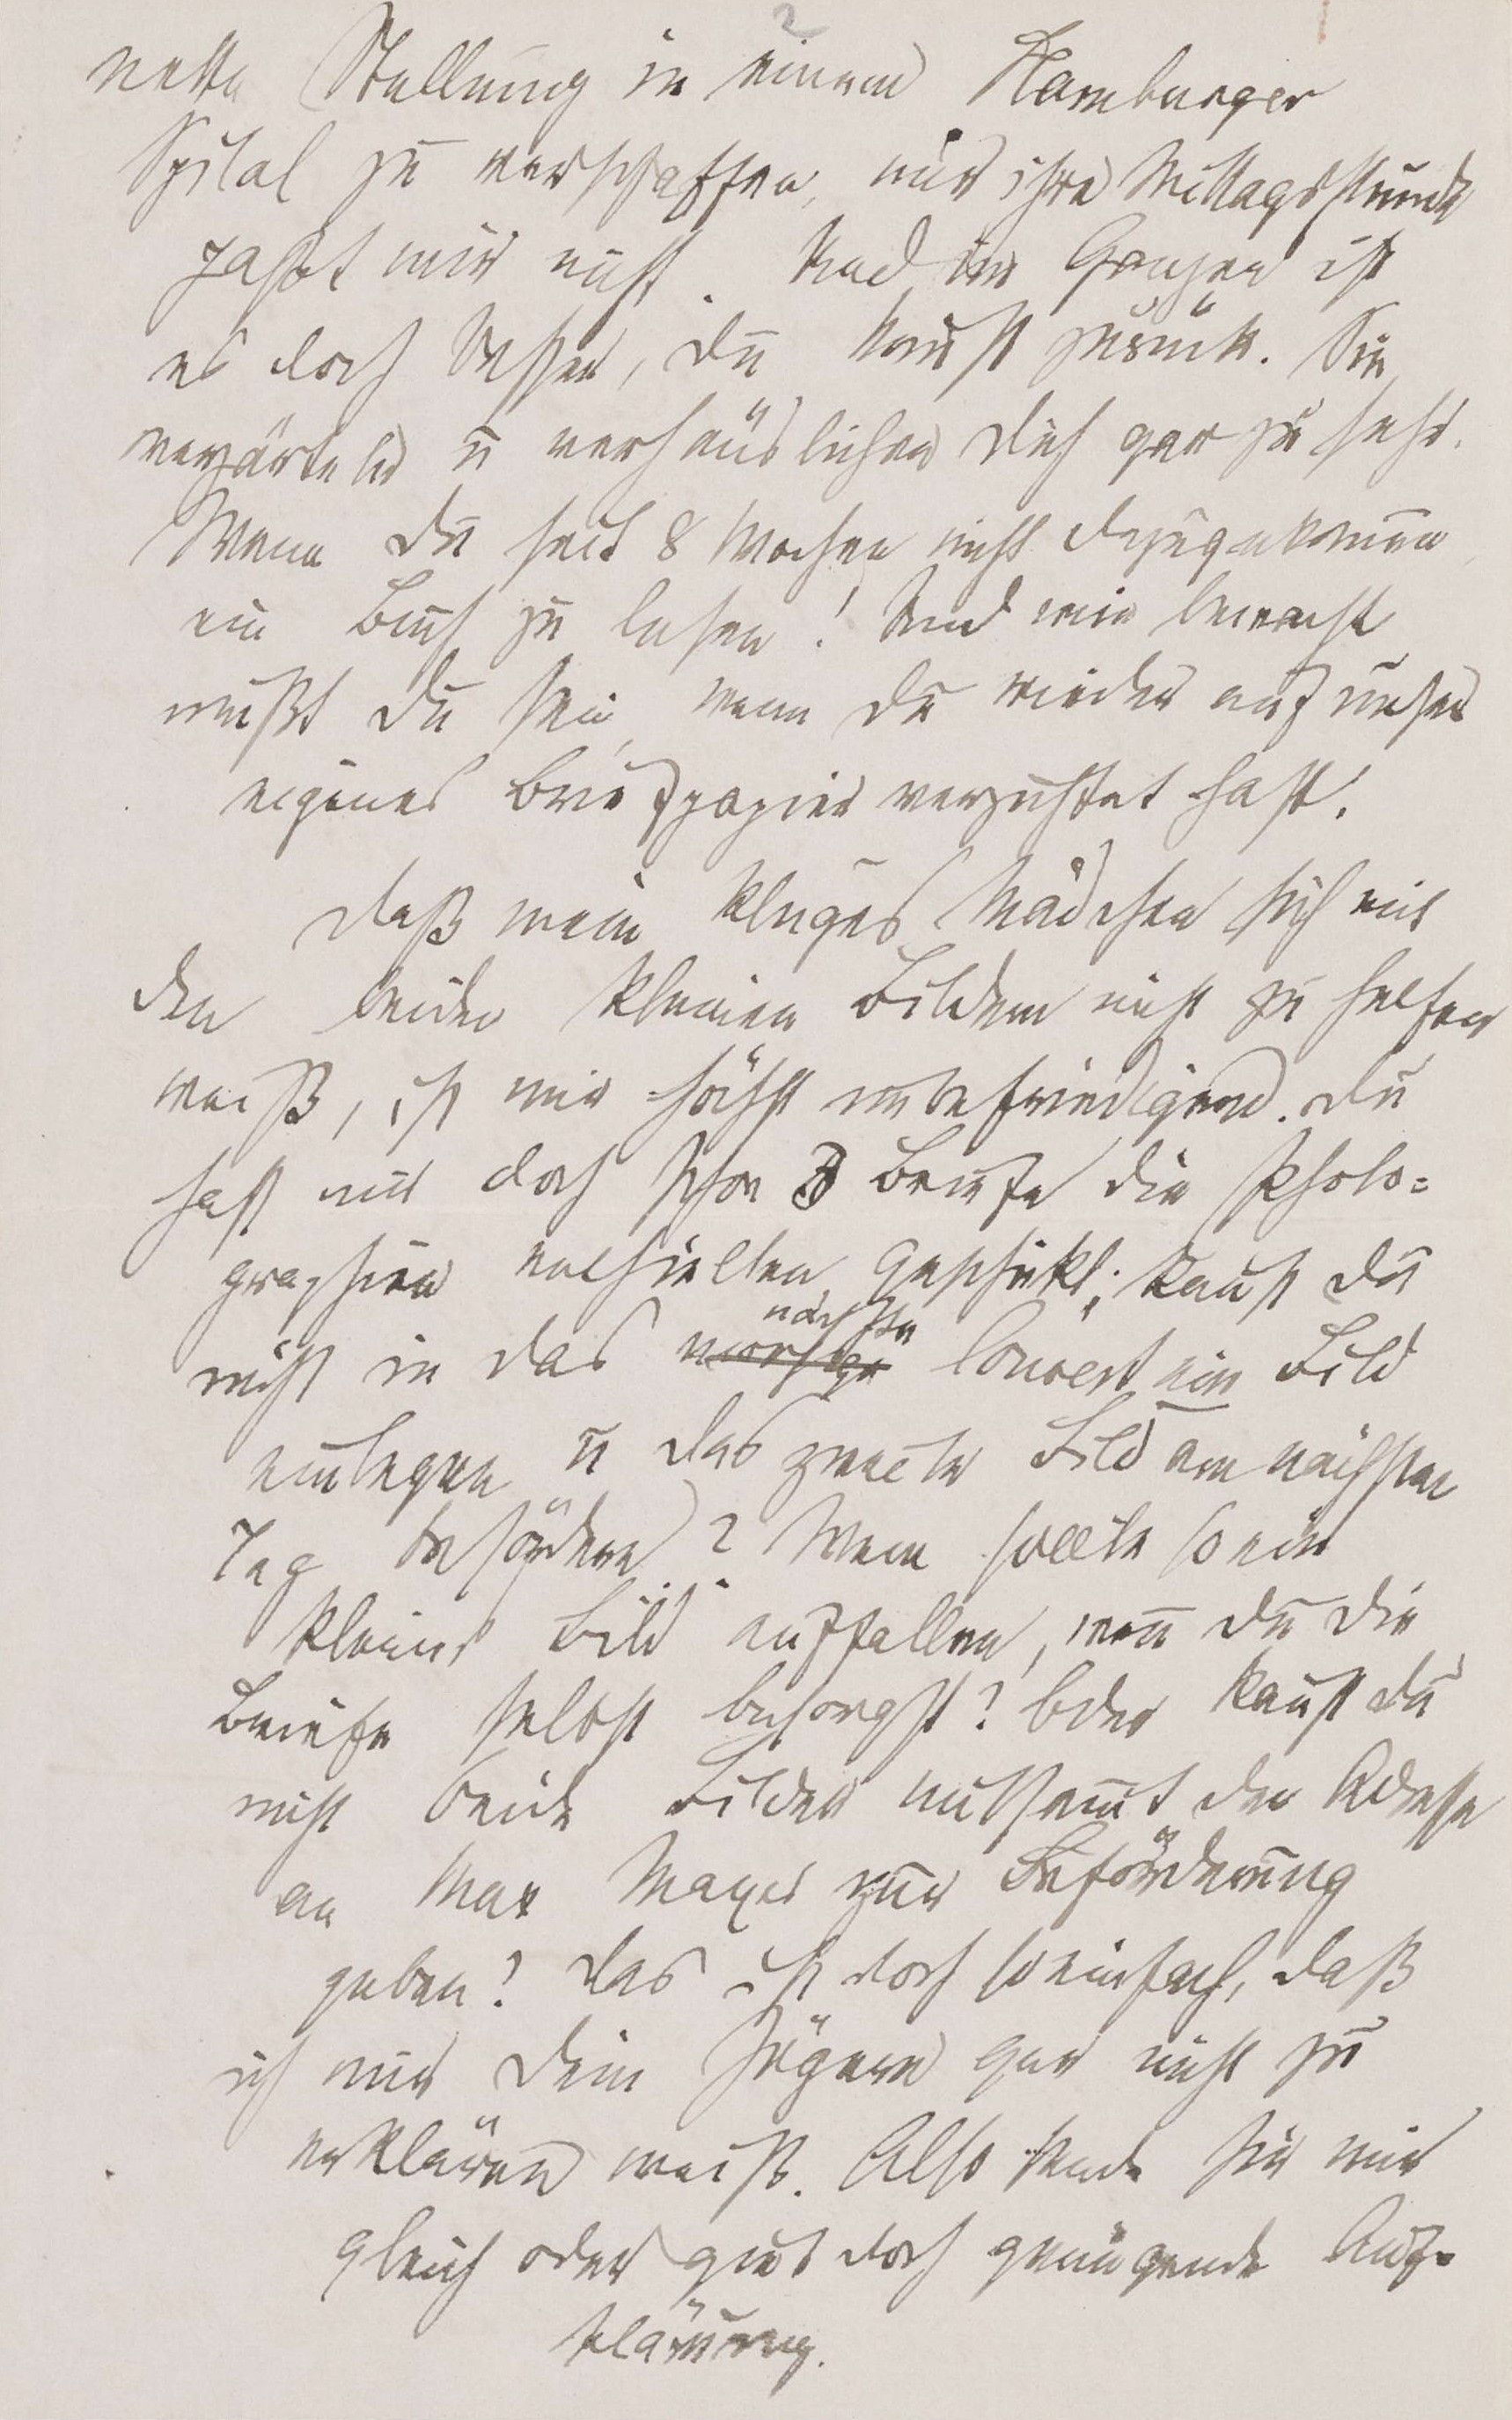 2
nette Stellung in einem Hamburger
Spital zu verschaffen, nur ihre Mittagsstunde
paßt mir nicht. Und im Ganzen ist
es doch besser, du kommst zurück. Sie
verzärteln u verhäuslichen dich gar zu sehr.
Wenn du seit 8 Wochen nicht dazugekommen
ein Buch zu lesen! Und wie bewacht
mußt du sein, wenn du wieder auf unser
eigenes Briefpapier verzichtet hast.
Daß mein kluges Mädchen sich mit
den beiden kleinen Bildern nicht zu helfen
weiß, ist mir höchst unbefriedigend. Du
hast mir doch schon 3 Briefe die Photo-
graphien enthielten geschickt; kannst du
nicht in das nächste Couvert ein Bild
einlegen u das zweite Bild am nächsten
Tag befördern? Wem sollte so ein
kleines Bild auffallen, wenn du die
Briefe selbst besorgst? Oder kannst du
nicht beide Bilder mitsammt der Adresse
an Max Mayer zur Beförderung
geben? Das ist doch so einfach, daß
ich mir dein Zögern gar nicht zu
erklären weiß. Also sende sie mir
gleich oder gieb doch genügende Auf-
klärung.